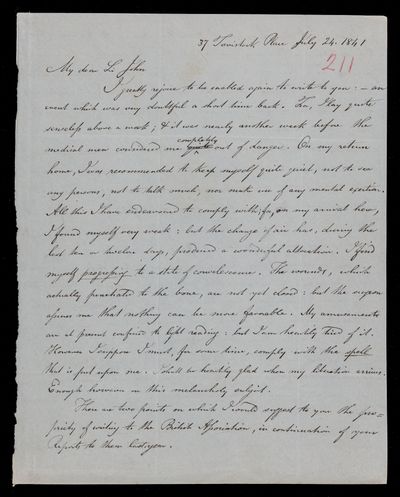 37 Tavistock Place July 24. 1841
211
My dear Sir John
I greatly rejoice to be enabled again to write to you: – an
event which was very doubtful a short time back. For, I lay quite
senseless above a week; & it was nearly another week before the
medical men considered me completely out of danger. On my return
home, I was recommended to keep myself quite quiet, not to see
any persons, not to talk much, nor make use of any mental exertion.
All this I have endeavoured to comply with; for, on my arrival here,
I found myself very weak: but the change of air has, during the
last ten or twelve days, produced a wonderful alteration. I find
myself progressing to a state of convalescence. The wounds, which
actually penetrated to the bone, are not yet closed: but the surgeon
assures me that nothing can be more favorable. My amusements
are at present confined to light reading: but I am heartily tired of it.
However I suppose I must, for some time, comply with the spell
that is put upon me. I shall be heartily glad when my liberation arrives.
Enough however on this melancholy subject.
There are two points on which I would suggest to you the pro=
priety of writing to the British Association, in continuation of your
Reports to them last year.